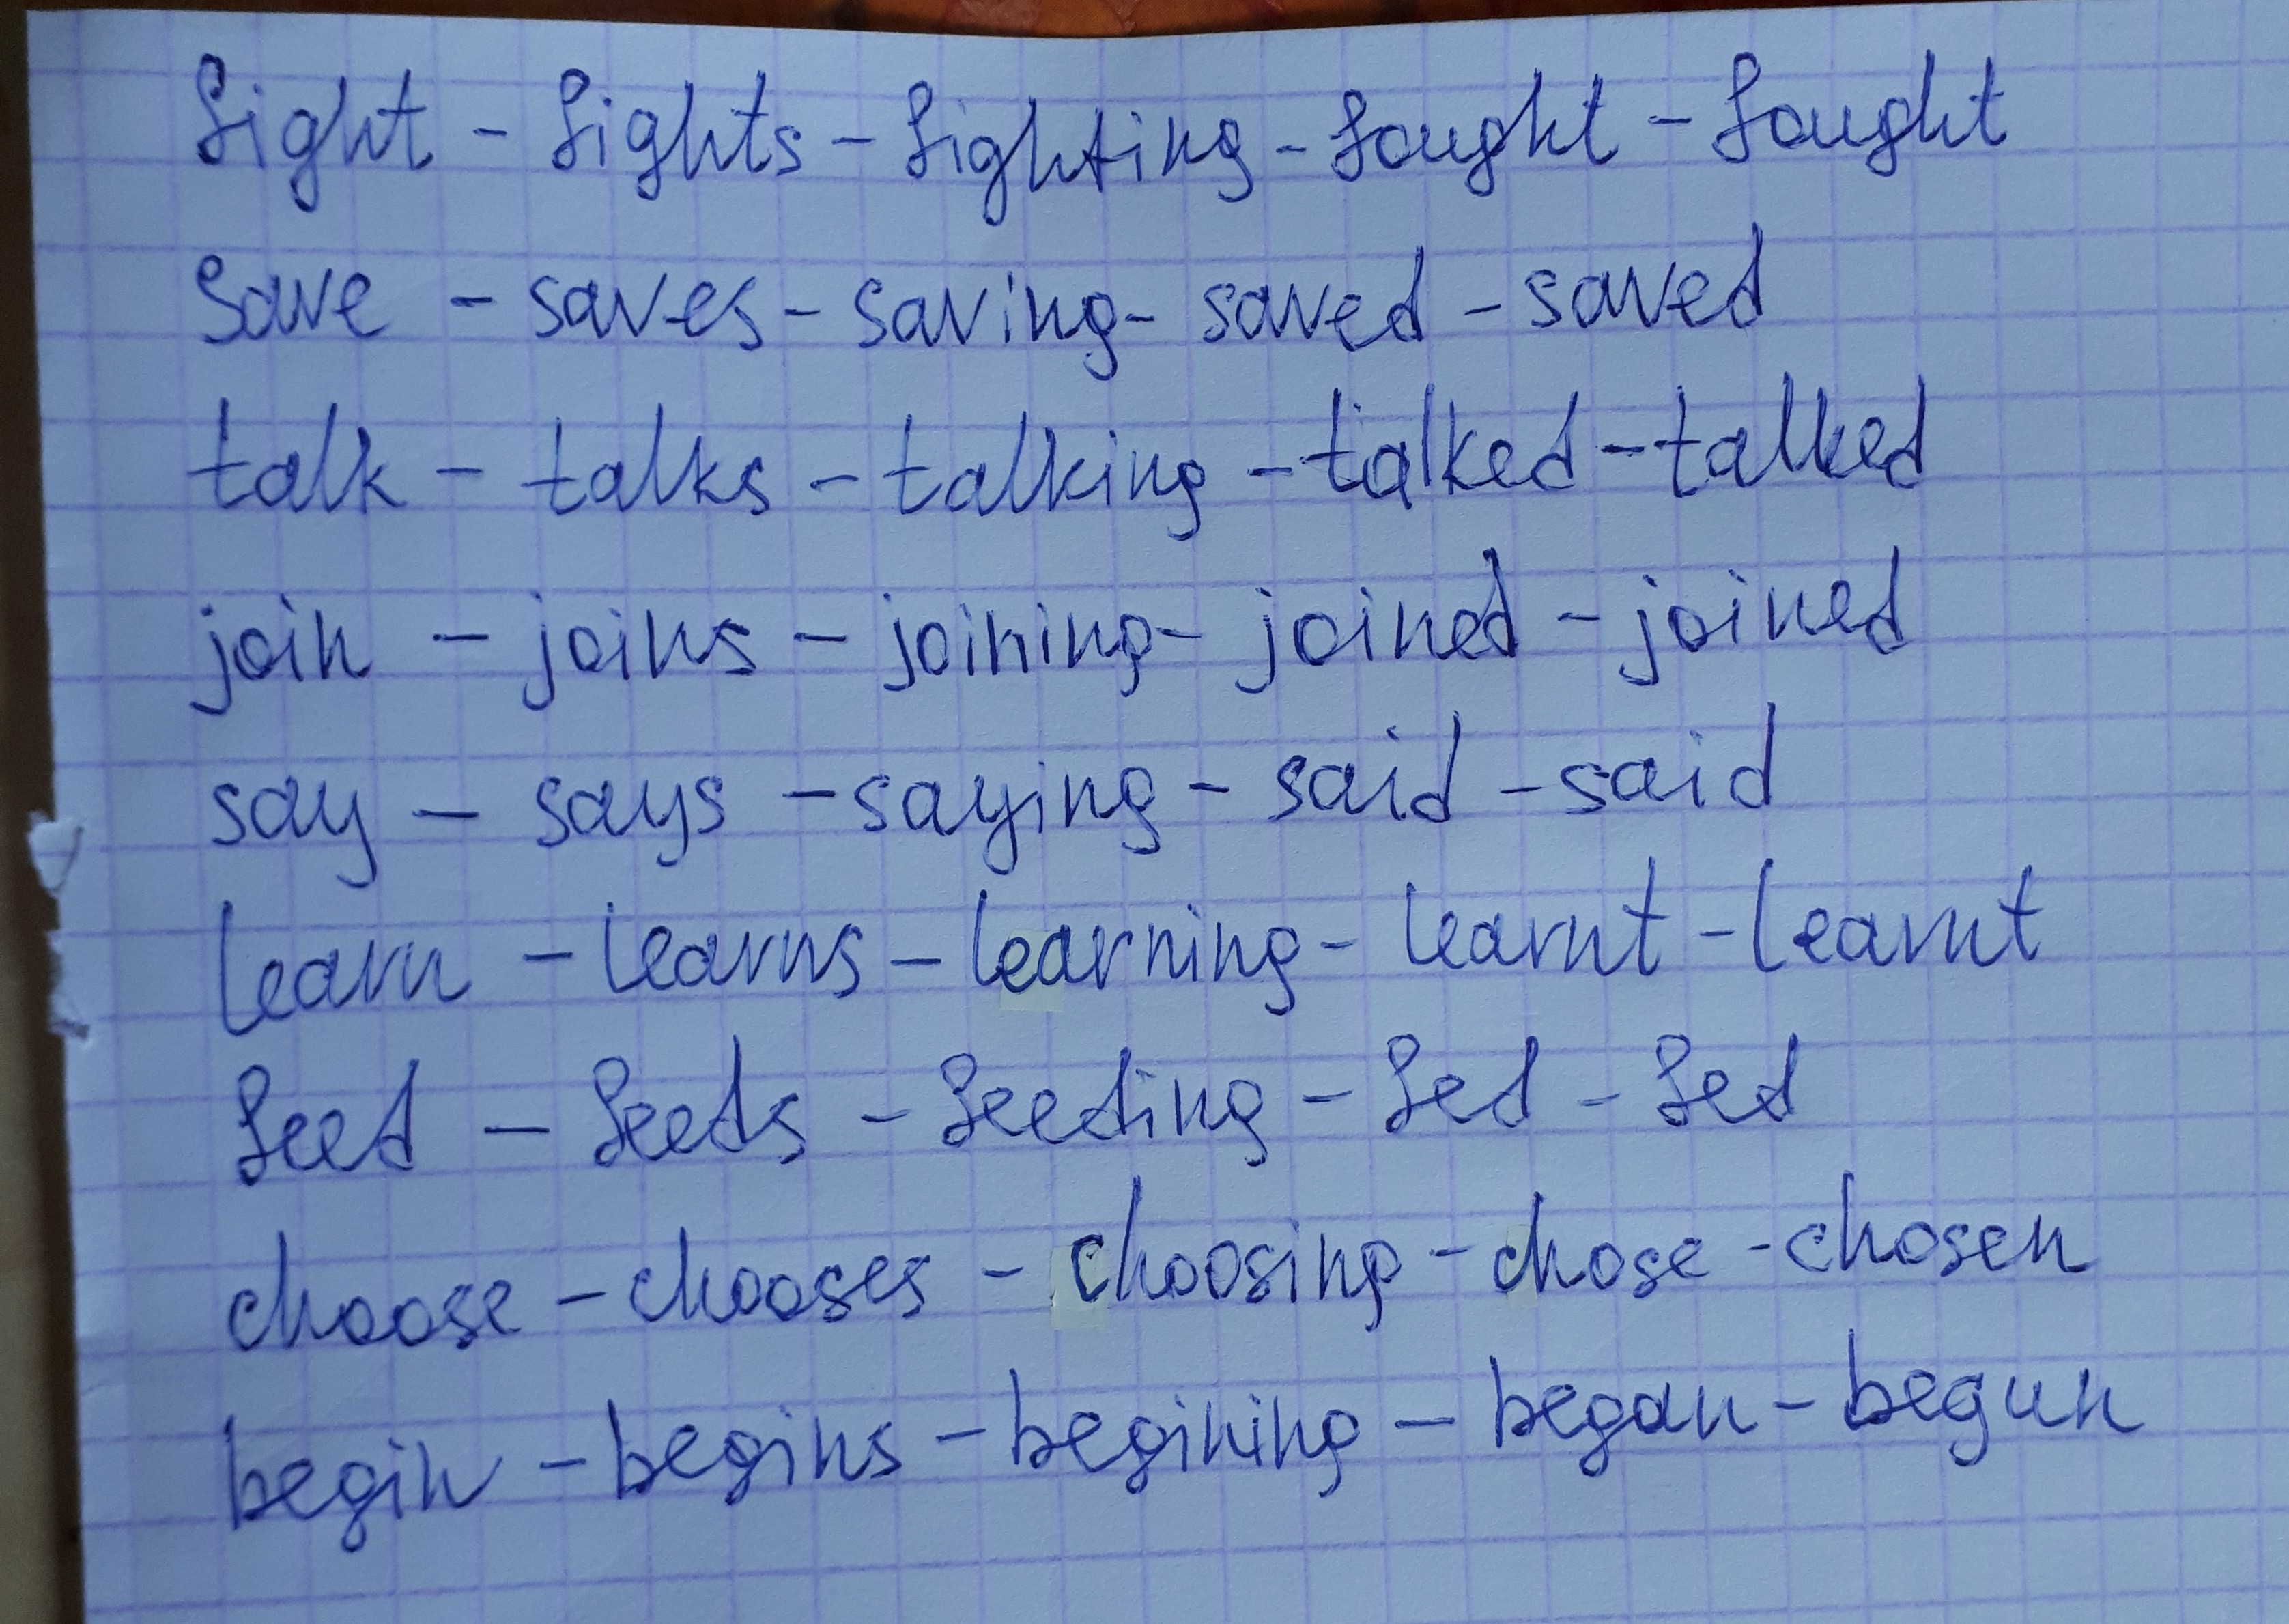 fight - fights - fighting - fought - fought
save - saves - saving - saved - saved
talk - talks - talking - talked - talked
join - joins - joining - joined - joined
say - says - saying - said - said
learn - learns - learning - learnt - learnt
feed - feeds - feeding - fed - fed
choose - chooses - choosing - chose - chosen
begin - begins - begining - began - begun